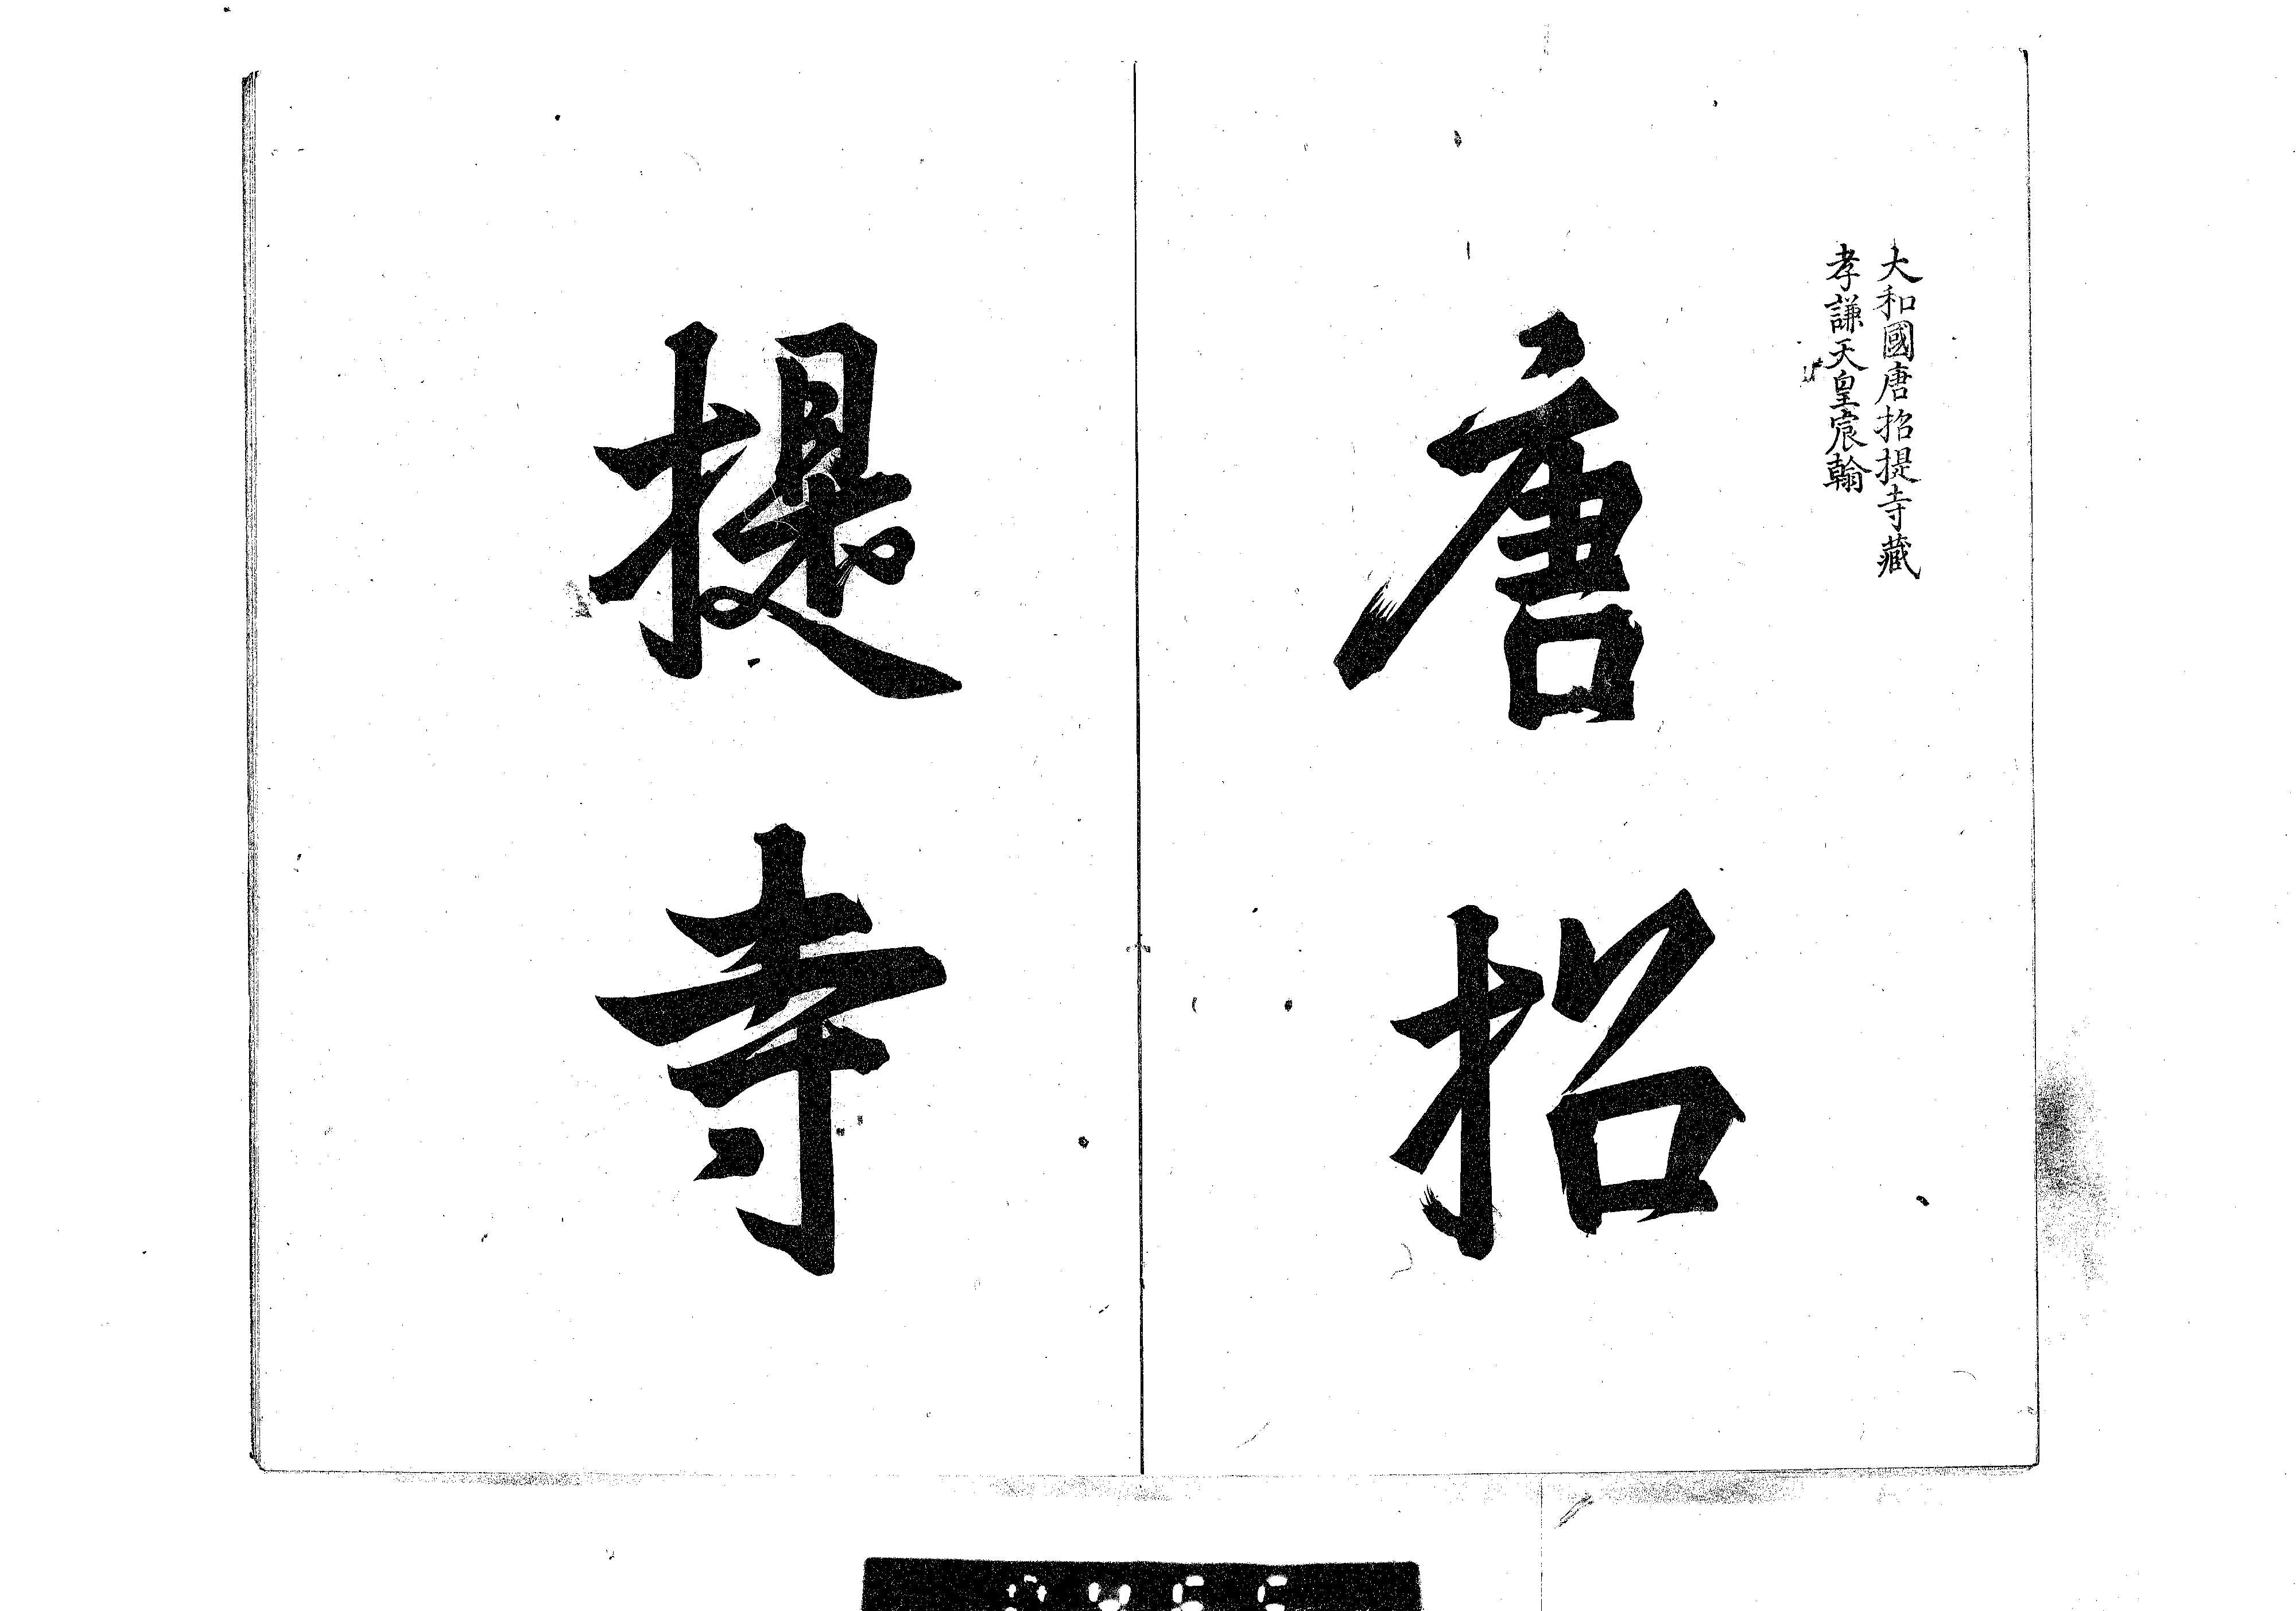 大和國唐招提寺藏
孝謙天皇宸翰
唐招
提寺